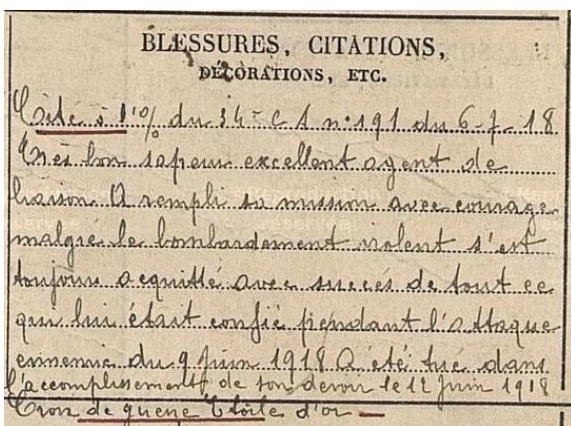 BLESSURES, CITATIONS,
DÉCORATIONS, ETC.
Cité à l'o/o du 34e C A n° 191 du 6-7-18
Très bon sapeur excellent agent de
liaison A rempli sa mission avec courage
malgré le bombardement violent s'est
toujours acquitté avec succès de tout ce
qui lui était confié pendant l'attaque
ennemie du 9 Juin 1918 A été tué dans
l'accomplissement de son devoir le 12 Juin 1918
Croix de guerre Etoile d'or